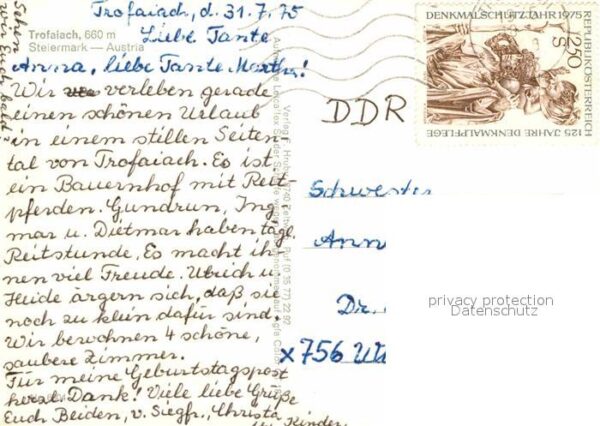 Trofaiach, d. 31.7.75
Trofaiach, 660 m
Steiermark — Austria
Liebe Tante
Anna, liebe Tante Martha!
Wir verleben gerade
einen schönen Urlaub
in einem stillen Seiten-
tal von Trofaiach. Es ist
ein Bauernhof mit Reit-
pferden. Gundrun, Ing
mar u. Dietmar haben tägl.
Reitstunde. Es macht ih-
nen viel Freude. Ulrich u
Heide ärgern sich, daß sie
noch zu klein dafür sind.
Wir bewohnen 4 schöne,
saubere Zimmer.
Für meine Geburtstagspost
herzl. Dank! Viele liebe Grüße
Euch Beiden, v. Siegfr., Christa
Kinder.
Sehen
wir Euch bald?
DENKMALSCHUTZJAHR 1975
REPUBLIK ÖSTERREICH
S 2.70
125 JAHRE DENKMALPFLEGE
DDR
Schwester
Ann
Dr.
x756
privacy protection
Datenschutz